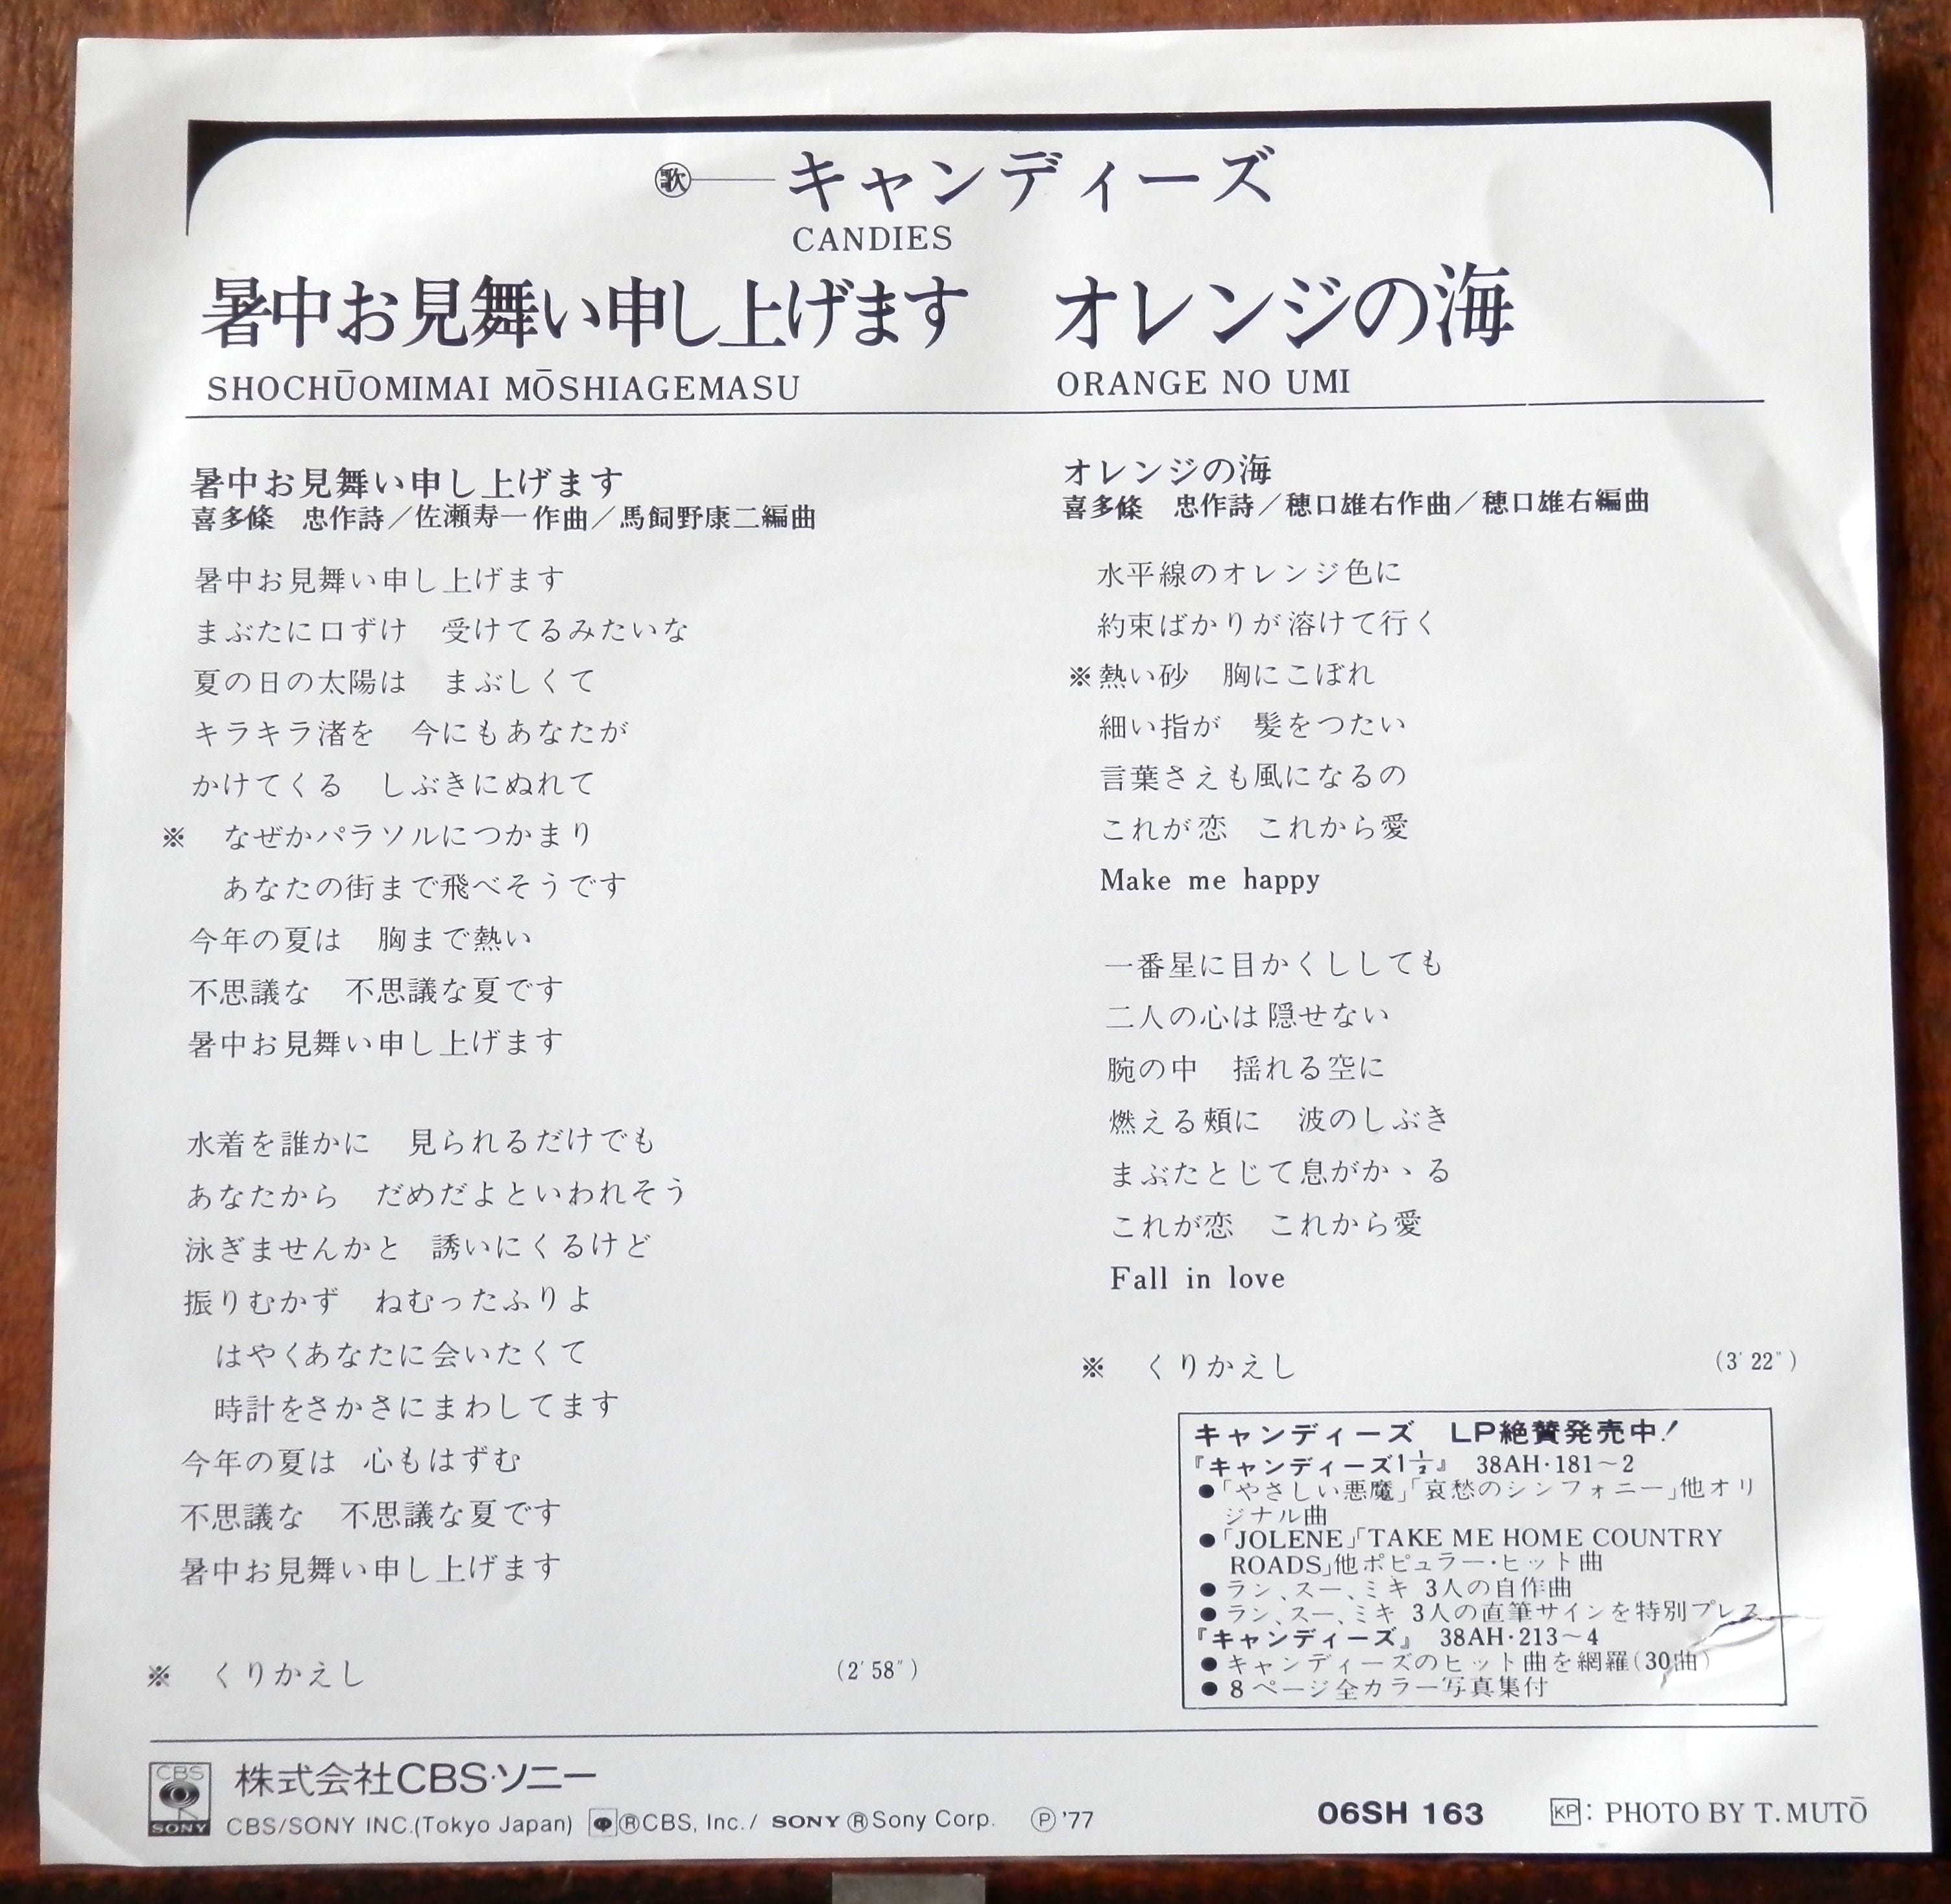 歌 キャンディーズ
CANDIES
暑中お見舞い申し上げます
SHOCHŪOMIMAI MŌSHIAGEMASU
オレンジの海
ORANGE NO UMI
暑中お見舞い申し上げます
喜多條　忠作詩／佐瀬寿一作曲／馬飼野康二編曲
暑中お見舞い申し上げます
まぶたに口ずけ　受けてるみたいな
夏の日の太陽は　まぶしくて
キラキラ渚を　今にもあなたが
かけてくる　しぶきにぬれて
※　なぜかパラソルにつかまり
あなたの街まで飛べそうです
今年の夏は　胸まで熱い
不思議な　不思議な夏です
暑中お見舞い申し上げます
水着を誰かに　見られるだけでも
あなたから　だめだよといわれそう
泳ぎませんかと　誘いにくるけど
振りむかず　ねむったふりよ
はやくあなたに会いたくて
時計をさかさにまわしてます
今年の夏は　心もはずむ
不思議な　不思議な夏です
暑中お見舞い申し上げます
※　くりかえし
(2′58″)
オレンジの海
喜多條　忠作詩／穂口雄右作曲／穂口雄右編曲
水平線のオレンジ色に
約束ばかりが溶けて行く
※熱い砂　胸にこぼれ
細い指が　髪をつたい
言葉さえも風になるの
これが恋　これから愛
Make me happy
一番星に目かくししても
二人の心は隠せない
腕の中　揺れる空に
燃える頬に　波のしぶき
まぶたとじて息がかゝる
これが恋　これから愛
Fall in love
※　くりかえし
(3′22″)
キャンディーズ　LP絶賛発売中!
『キャンディーズ1½』 38AH・181～2
●「やさしい悪魔」「哀愁のシンフォニー」他オリ
ジナル曲
●「JOLENE」「TAKE ME HOME COUNTRY
ROADS」他ポピュラー・ヒット曲
●ラン、スー、ミキ 3人の自作曲
●ラン、スー、ミキ 3人の直筆サインを特別プレス
『キャンディーズ』 38AH・213～4
●キャンディーズのヒット曲を網羅(30曲)
●8ページ全カラー写真集付
CBS
SONY
株式会社CBS・ソニー
CBS/SONY INC.(Tokyo Japan) ®CBS, Inc./ SONY ®Sony Corp. ℗'77
06SH 163
KP: PHOTO BY T.MUTŌ